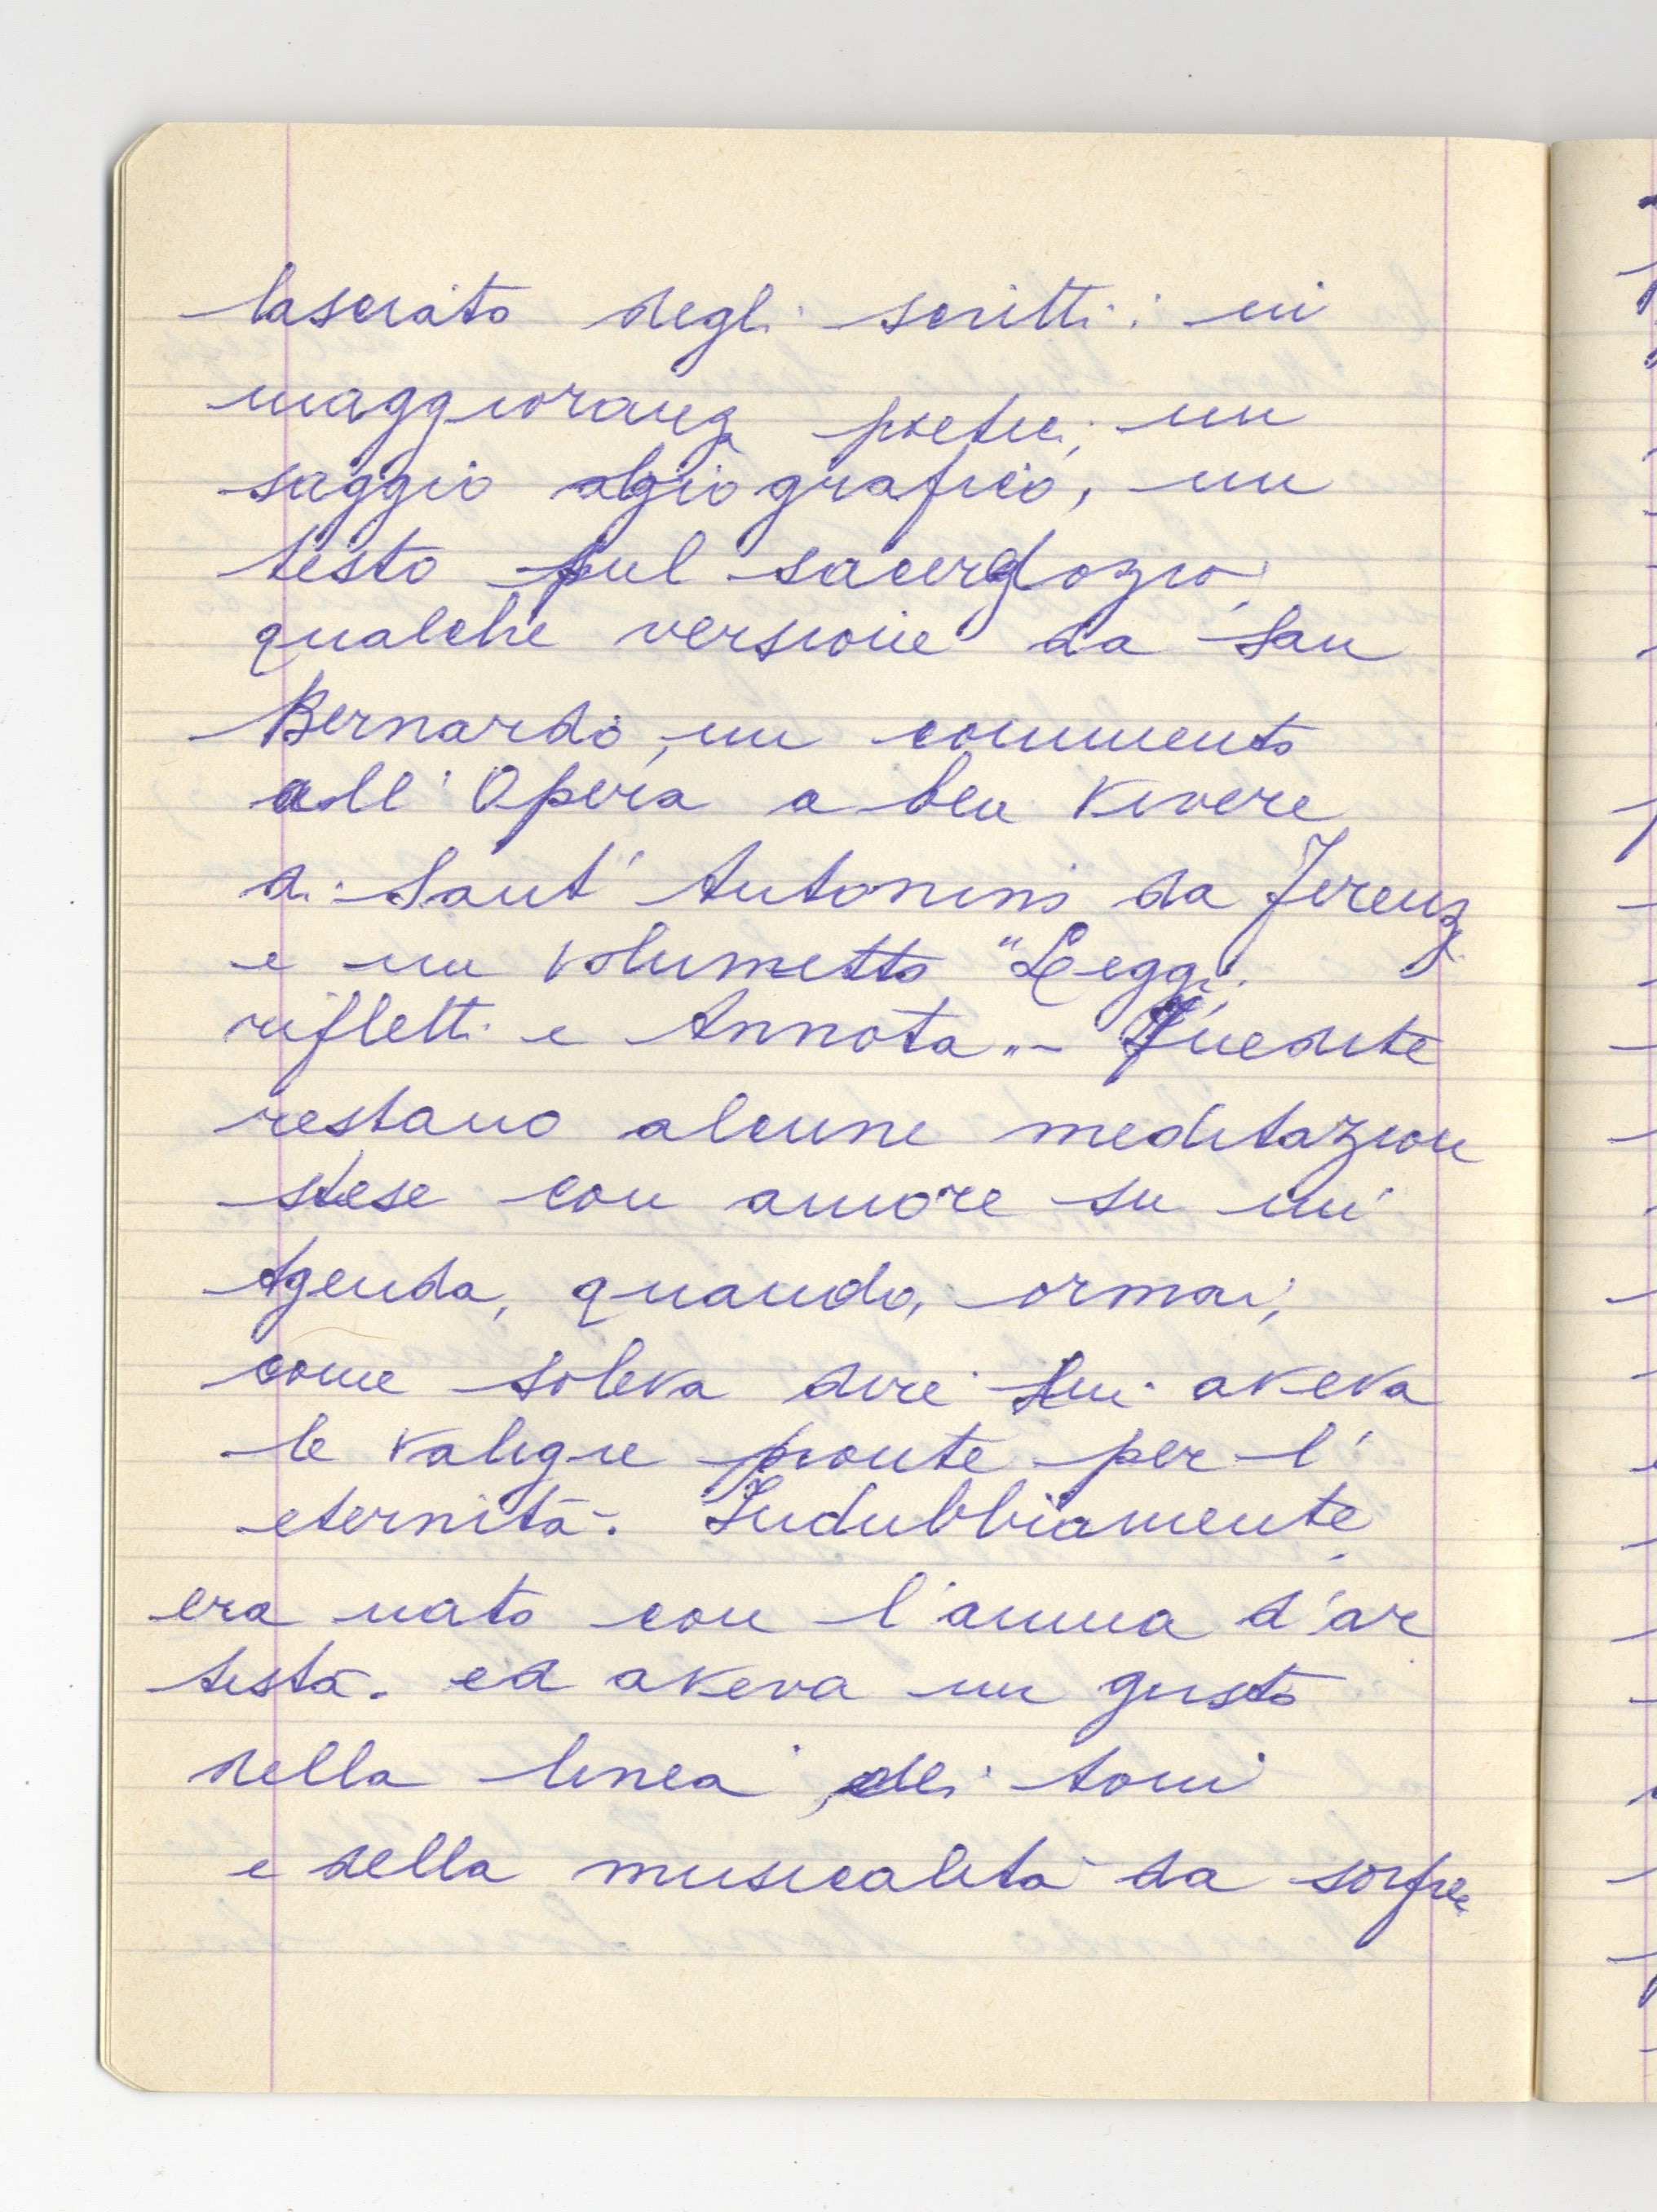 lasciato degli scritti: in
maggioranza poetici, un
saggio agiografico, un
testo sul sacerdozio,
qualche versione da San
Bernardo, un commento
all'Opera a ben vivere
di Sant'Antonino da Firenze
e un volumetto "Leggi,
rifletti e Annota".- Inedite
restano alcune meditazioni
stese con amore su un'
Agenda, quando, ormai,
come soleva dire Lui aveva
le valigie pronte per l'
eternità. Indubbiamente,
era nato con l'anima d'ar
tista. ed aveva un gusto
della linea, dei toni
e della musicalità da sorpre